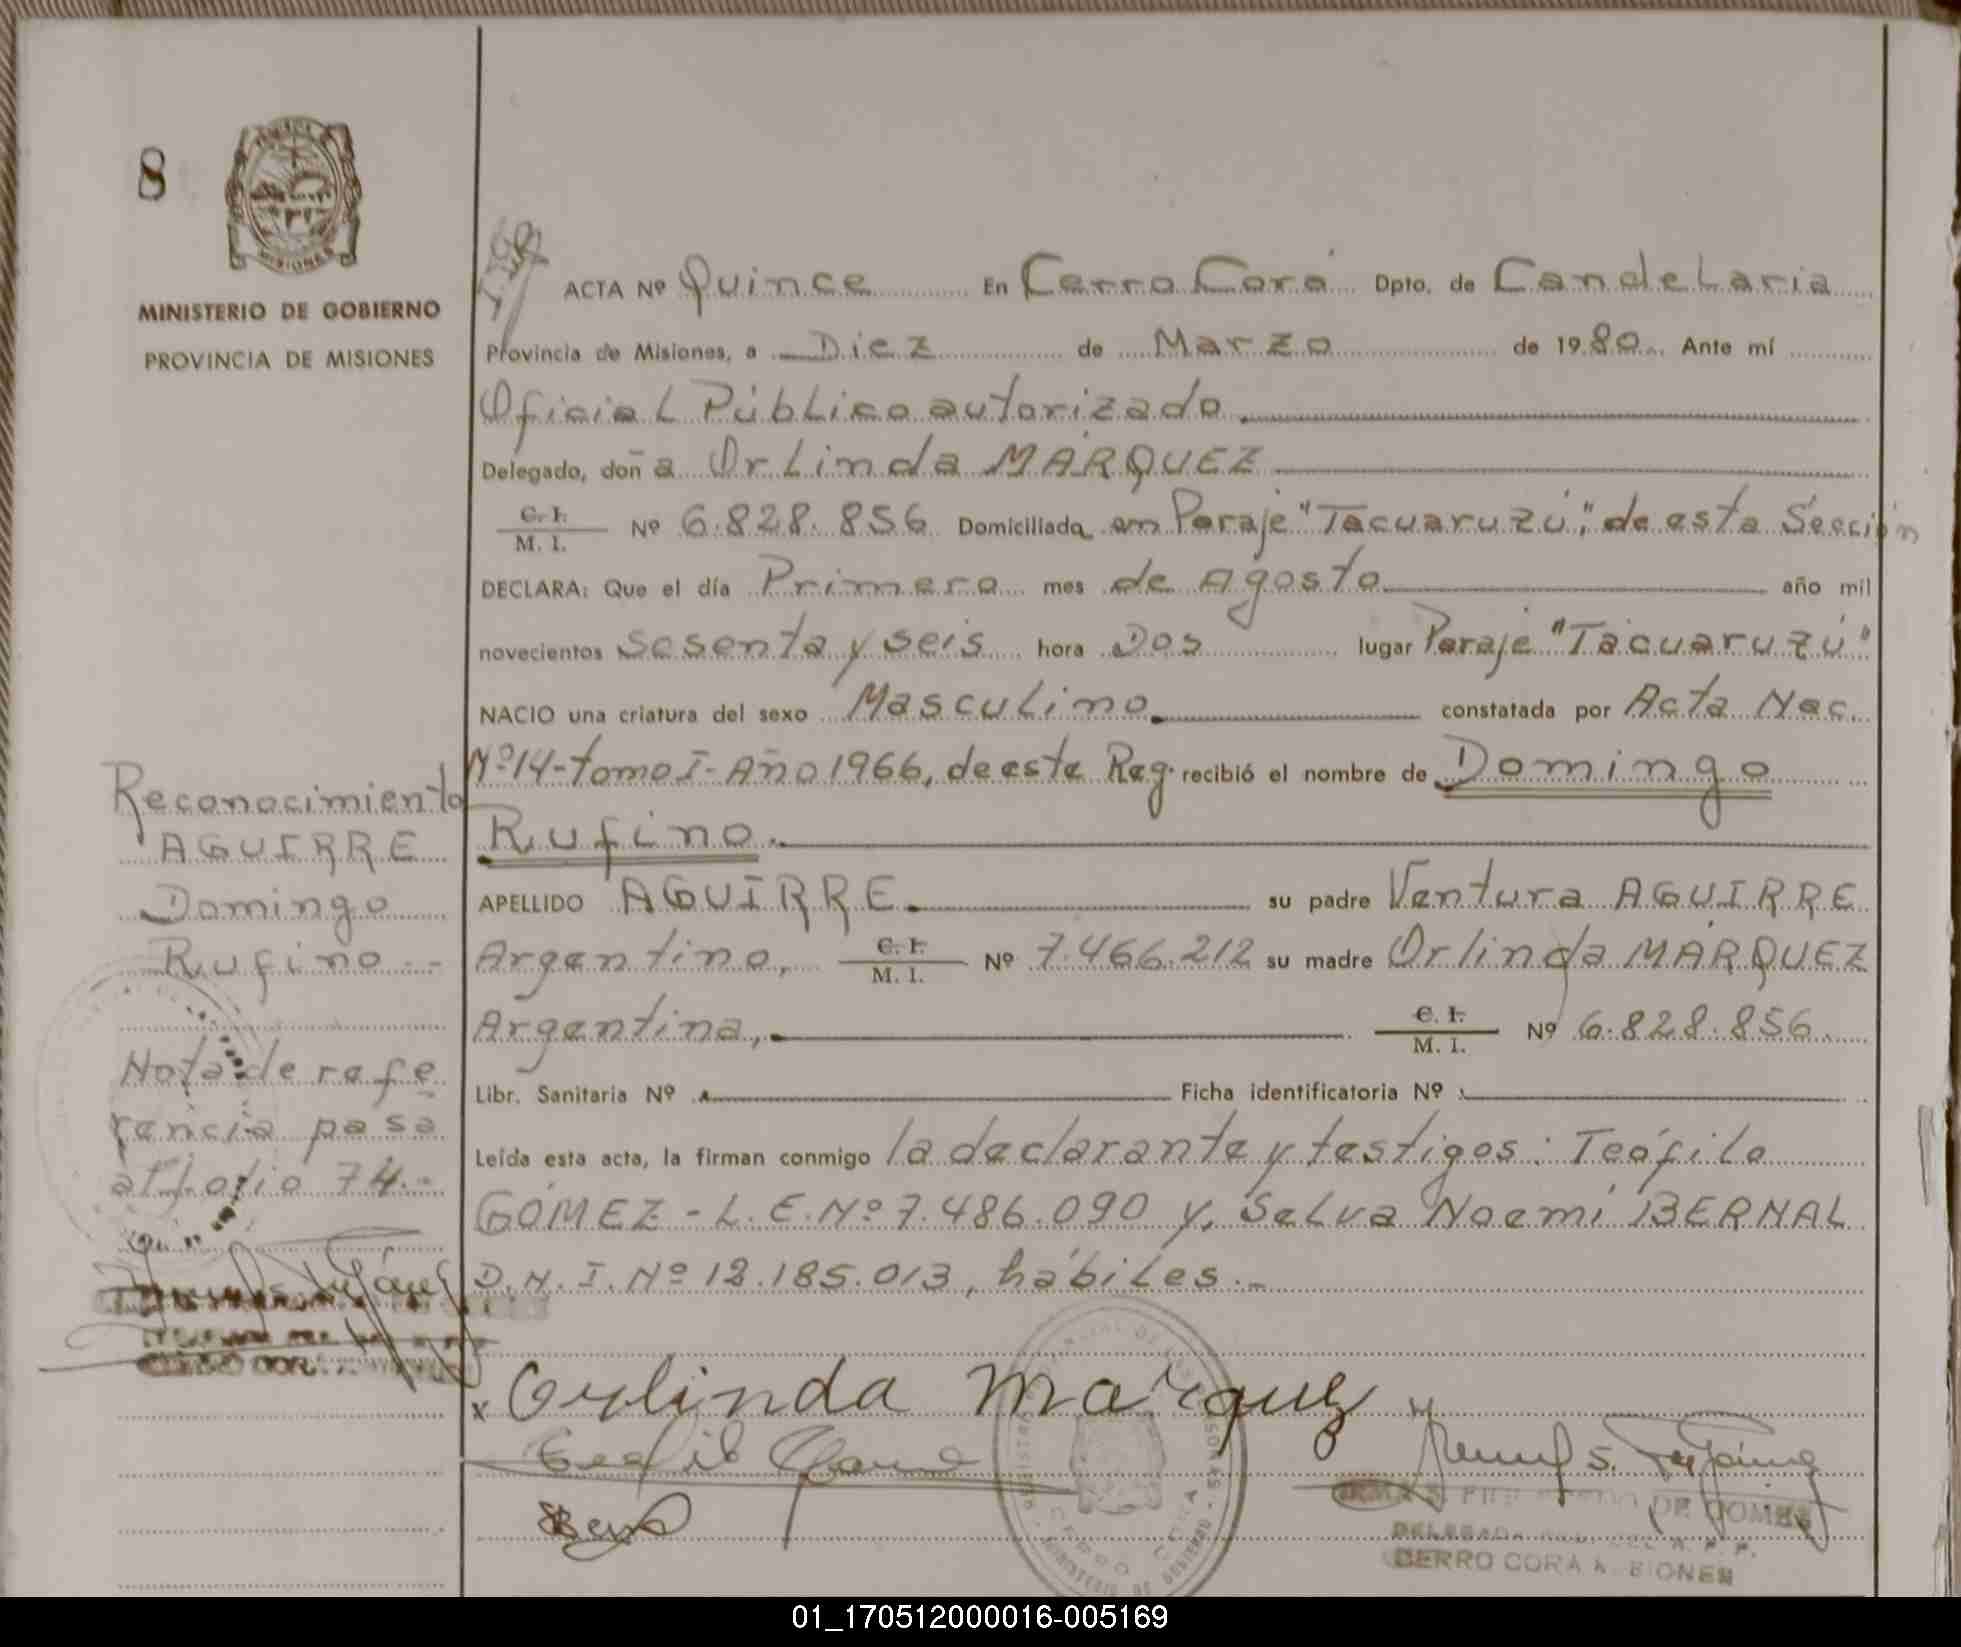 8
MISIONES
MINISTERIO DE GOBIERNO
PROVINCIA DE MISIONES
ACTA Nº Quince En Cerro Corá Dpto. de Candelaria
Provincia de Misiones, a Diez de Marzo de 1980 Ante mí
Oficial Público autorizado
Delegado, doña Orlinda MÁRQUEZ
C. I.
M. I. Nº 6.828.856 Domiciliada en Paraje "Tacuaruzú", de esta Sección
DECLARA: Que el día Primero mes de Agosto año mil
novecientos sesenta y seis hora Dos lugar Paraje "Tacuaruzú"
NACIO una criatura del sexo Masculino constatada por Acta Nac.
Nº 14-tomo I-Año 1966, de este Reg. recibió el nombre de Domingo
Rufino.
APELLIDO AGUIRRE su padre Ventura AGUIRRE
Argentino, C. I.
M. I. Nº 7.466.212 su madre Orlinda MÁRQUEZ
Argentina, C. I.
M. I. Nº 6.828.856
Libr. Sanitaria Nº Ficha identificatoria Nº
Leída esta acta, la firman conmigo la declarante y testigos: Teófilo
GÓMEZ - L.E.Nº 7.486.090 y, Selva Noemí BERNAL
D.N.I. Nº 12.185.013, hábiles.-
Reconocimiento
AGUIRRE
Domingo
Rufino.-
Nota de refe
rencia pasa
al folio 74.-
x Orlinda Marquez
DE GOMES
DELEGADA
CERRO CORA
CERRO CORA
MINISTERIO DE GOBIERNO
01_170512000016-005169